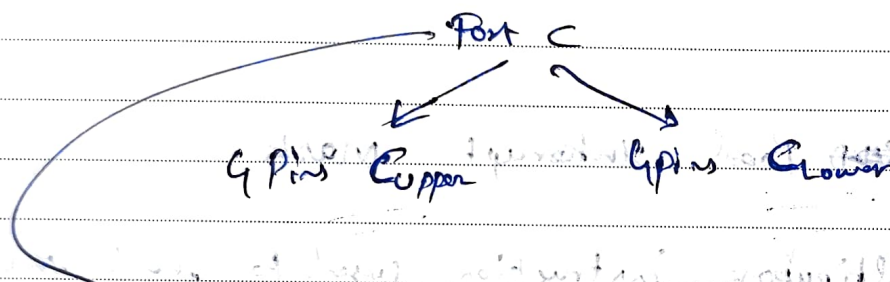 Port C
4 Pins Cupper 4 pins CLower